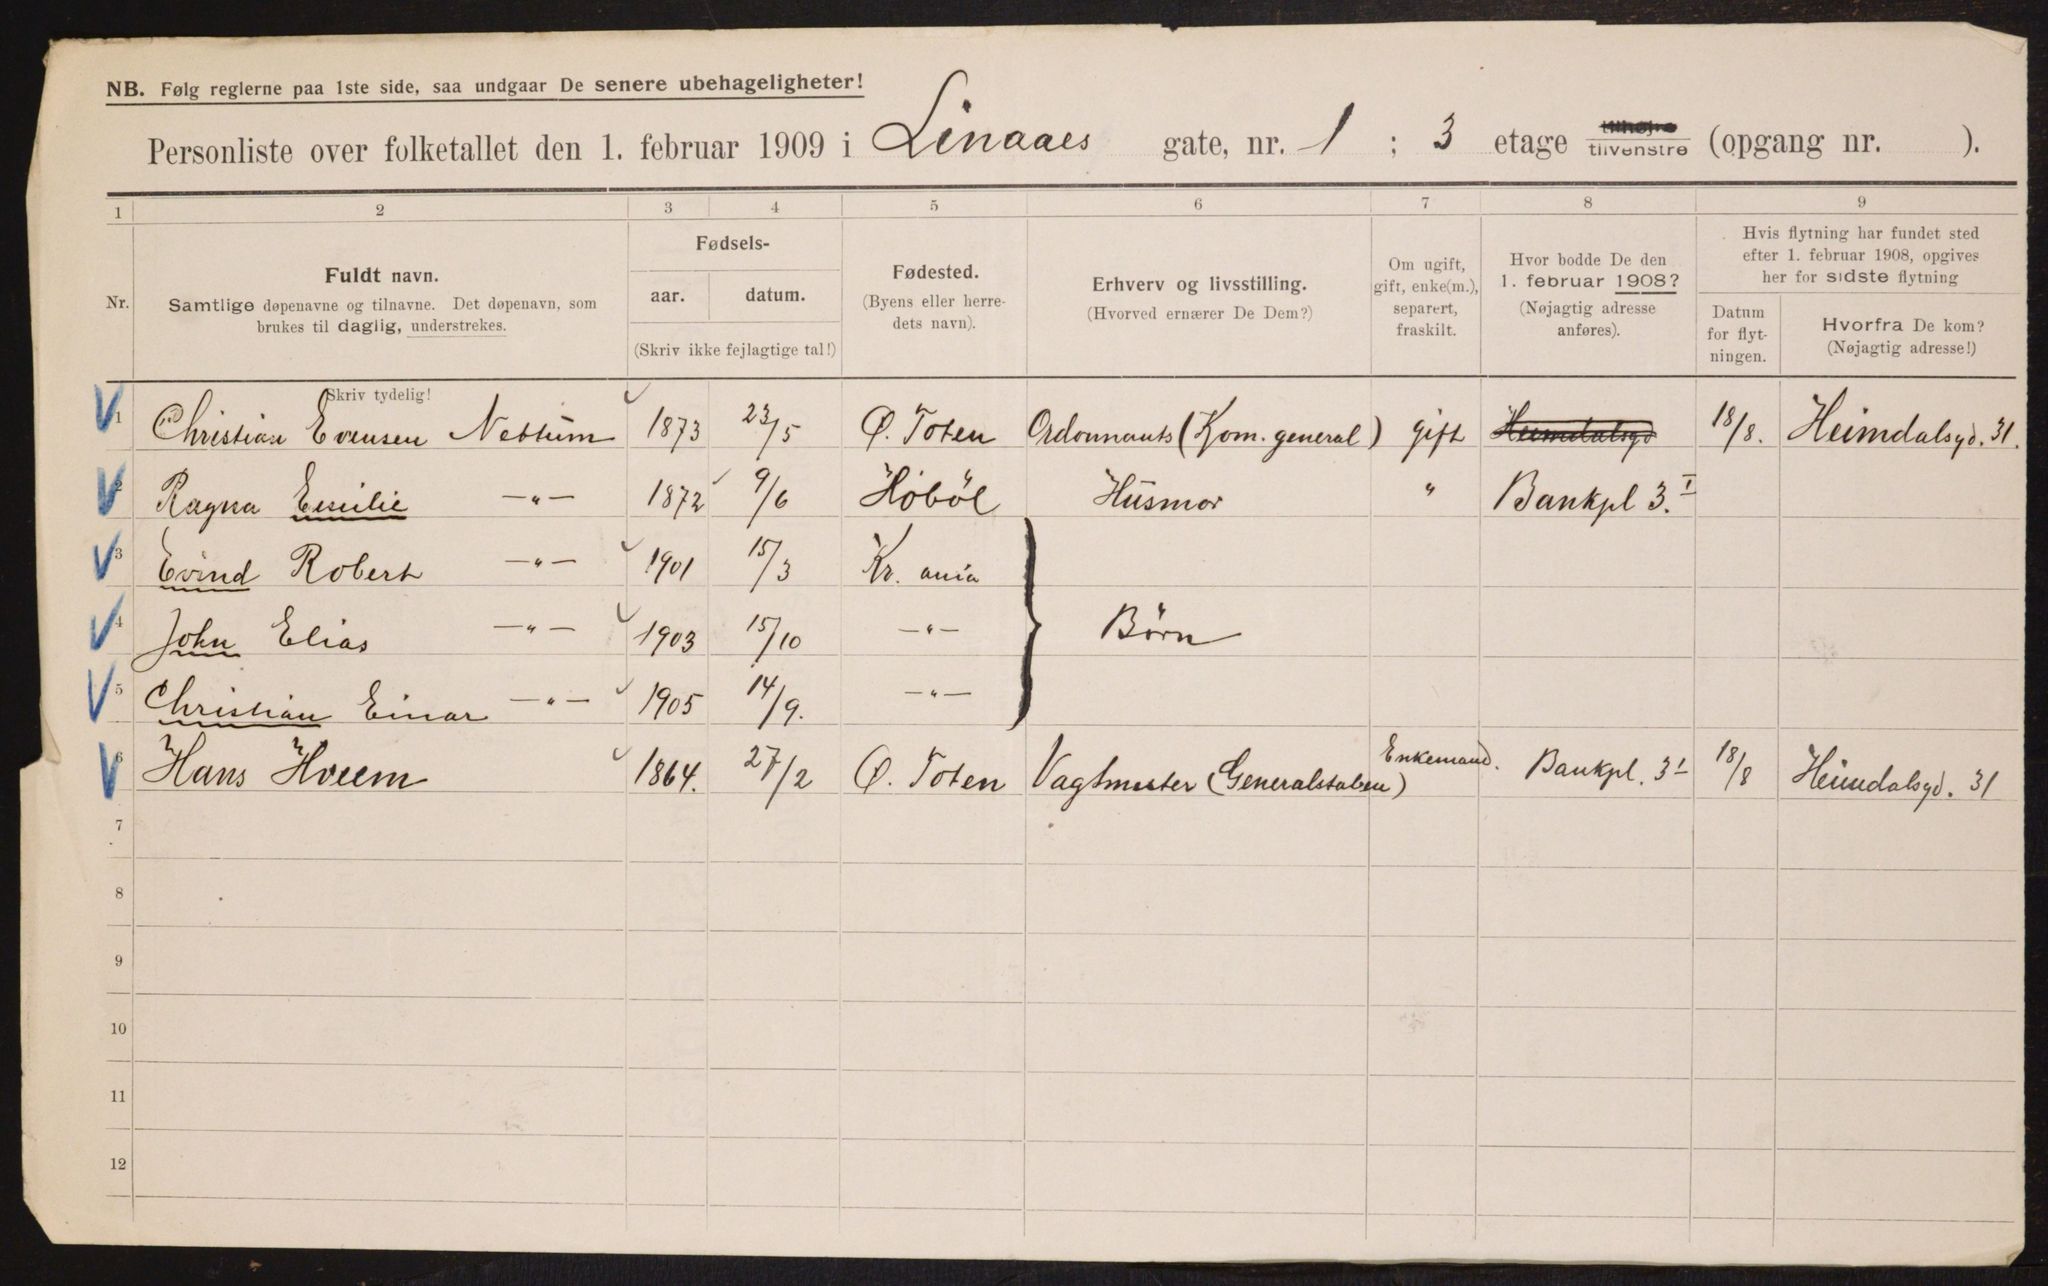 NB. Følg reglerne paa 1ste side, saa undgaar De senere ubehageligheter!
Personliste over folketallet den 1. februar 1909 i Linaaes gate, nr. 1 ; 3 etage tilhøjre tilvenstre (opgang nr. ).
1 2 3 4 5 6 7 8 9
Nr.
Fuldt navn.
Samtlige døpenavne og tilnavne. Det døpenavn, som
brukes til daglig, understrekes.
Fødsels-
aar. datum.
(Skriv ikke fejlagtige tal!)
Fødested.
(Byens eller herre-
dets navn).
Erhverv og livsstilling.
(Hvorved ernærer De Dem?)
Om ugift,
gift, enke(m.),
separert,
fraskilt.
Hvor bodde De den
1. februar 1908?
(Nøjagtig adresse
anføres).
Hvis flytning har fundet sted
efter 1. februar 1908, opgives
her for sidste flytning
Datum
for flyt-
ningen.
Hvorfra De kom?
(Nøjagtig adresse!)
Skriv tydelig!
1 Christian Evensen Nettum 1873 23/5 Ø. Toten Ordonnants (Kom. general) gift Heimdalsgd 18/8. Heimdalsgd. 31.
2 Ragna Emilie —„— 1872 9/6 Höböl Husmor „ Bankpl 3. I
3 Evind Robert —„— 1901 15/3 Kr. ania
4 John Elias —„— 1903 15/10 —„— Børn
5 Christian Einar —„— 1905 14/9. —„—
6 Hans Hveem 1864. 27/2 Ø. Toten Vagtmester (Generalstaben) Enkemand. Bankpl. 3 I 18/8 Heimdalsgd. 31
7
8
9
10
11
12